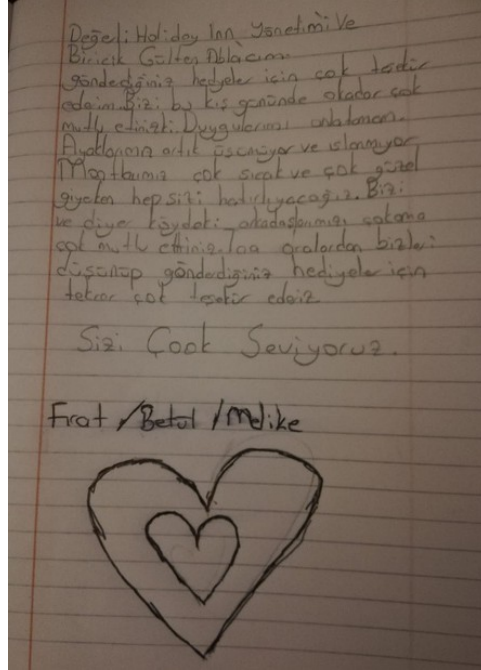 Değerli Holiday Inn Yönetimi Ve
Biricik Gülten Ablacım.
gönderdiğiniz hediyeler için çok
ederim. Bizi bu kış gününde okadar çok
mutlu ettinizki. Duygularımı anlatamam.
Ayaklarımız artık üşümüyor ve ıslanmıyor
Montlarımız çok sıcak ve çok güzel
giyerken hep sizi hatırlıyacağız. Bizi
ve diyer köydeki arkadaşlarımızı
çok mutlu ettiniz. oralardan bizleri
düşünüp gönderdiğiniz hediyeler için
tekrar çok teşekür ederiz.
Sizi Çook Seviyoruz.
Fırat / Betül / Melike